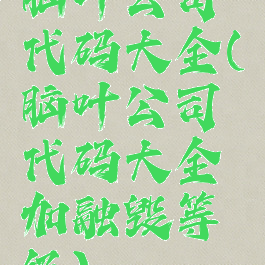 脑叶公司
代码大全(
脑叶公司
代码大全
加融毁等
级)